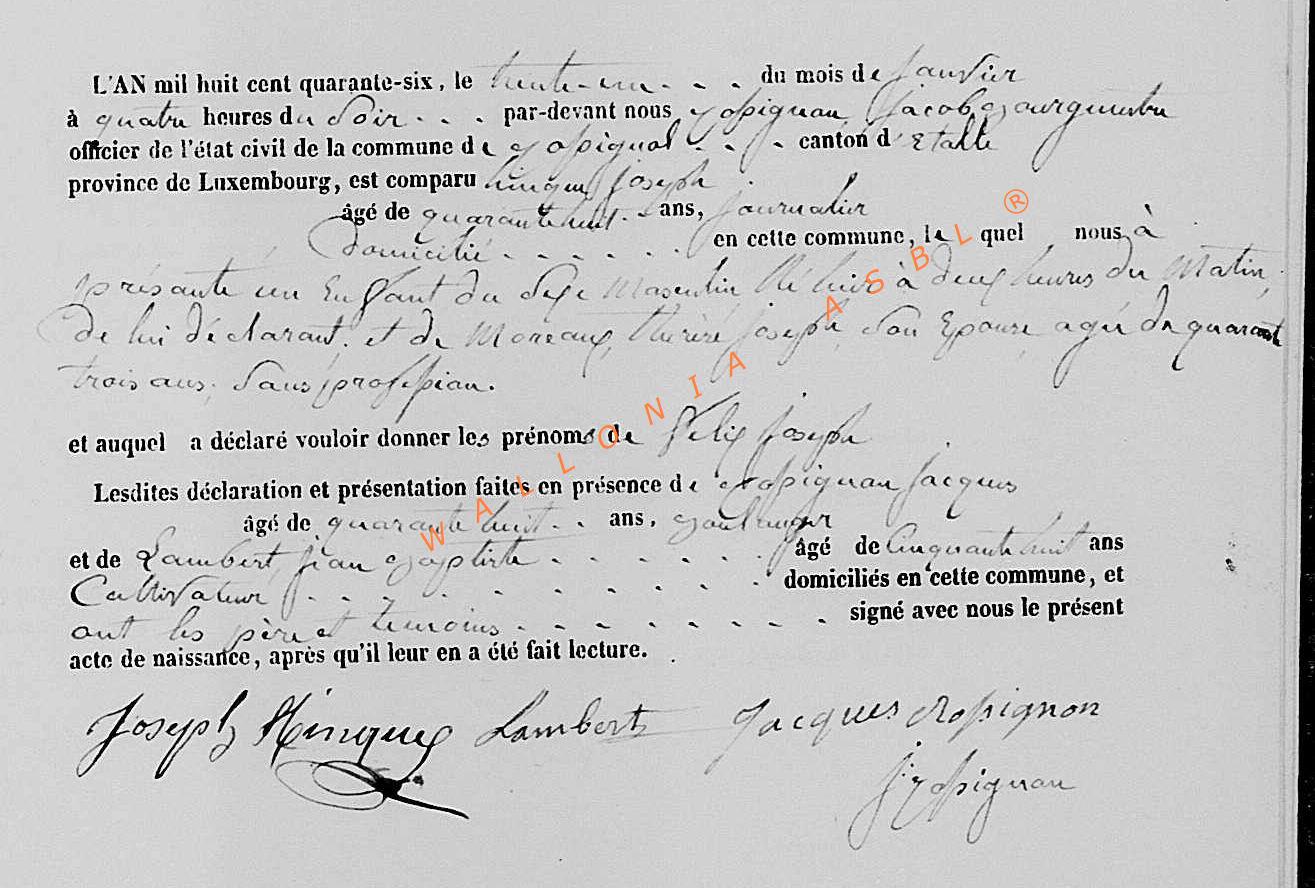 L'AN mil huit cent quarante-six, le trente-un - - du mois de Janvier
à quatre heures du Soir - - - par-devant nous Rossignon Jacob Bourguemestre
officier de l'état civil de la commune de Rossignol - - - canton d'Etalle
province de Luxembourg, est comparu hinque Joseph
âgé de quarante huit - ans, Journalier
Domicilié - - - - - - en cette commune, le quel nous à
présante un Enfant du Sexe Masculin Né hier à deux heures du Matin,
de lui déclarant, et de Moreaux, Thérèse Joseph, Son Epouse agée de quarante
trois ans, Sans profession.
et auquel a déclaré vouloir donner les prénoms de Félix Joseph
Lesdites déclaration et présentation faites en présence de Rossignon Jacques
âgé de quarante huit - - ans, Boulanger
et de Lambert Jean Baptiste - - - - - - âgé de Cinquante huit ans
Cultivateur - - - - - - - - domiciliés en cette commune, et
ont les père et temoins - - - - - - - signé avec nous le présent
acte de naissance, après qu'il leur en a été fait lecture.
Joseph Hinque Lambert Jacques Rossignon
J Rossignon
WALLONIA ASBL ®